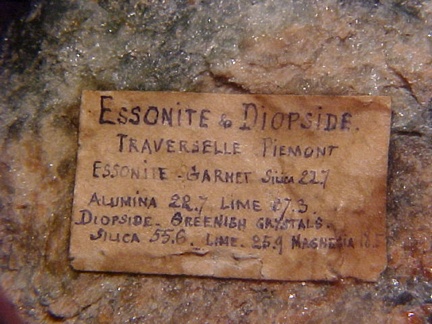 ESSONITE & DIOPSIDE.
TRAVERSELLE PIEMONT
ESSONITE - GARNET Silica 22.7
ALUMINA 22.7 LIME 07.3.
DIOPSIDE. GREENISH CRYSTALS.
SILICA 55.6. LIME. 25.9 MAGNESIA